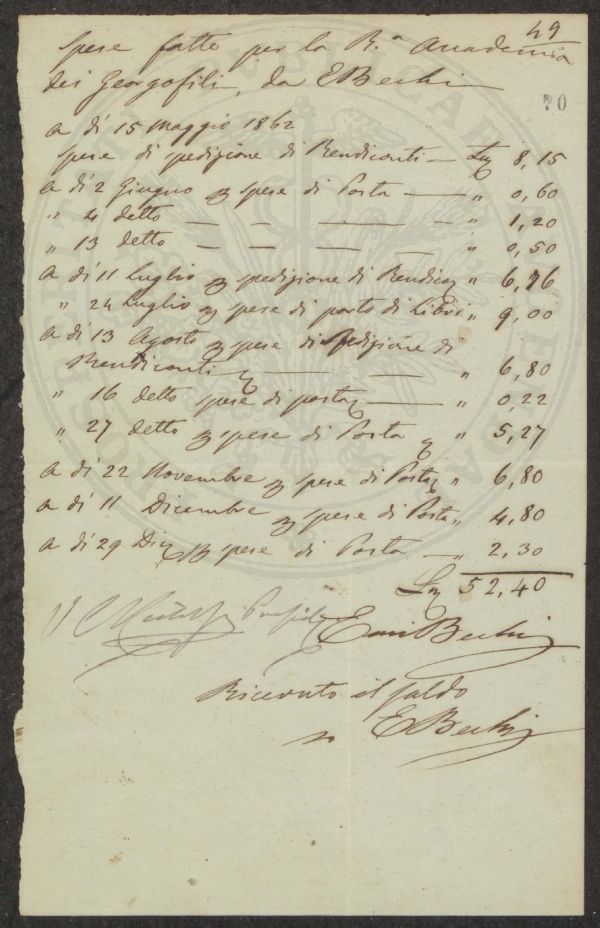 49
Spese fatte per la R.ª Accademia
dei Georgofili, da EBechi
70
a di 15 Maggio 1862
Spese di spedizione di Rendiconti — 8,15
a di 2 Giugno spese di Posta — " 0,60
" 4 detto — — — — " 1,20
" 13 detto — — — — " 0,50
a di 11 Luglio spedizione di " 6,76
" 24 Luglio spese di porto di Libri " 9,00
a di 13 Agosto spese di Spedizione di
Rendiconti — — " 6,80
" 16 detto spese di posta — " 0,22
" 27 detto spese di Posta " 5,27
a di 22 Novembre spese di Posta " 6,80
a di 11 Dicembre spese di Posta " 4,80
a di 29 spese di Posta — " 2,30
52,40
V Emi Bechi
Ricevuto il saldo
EBechi